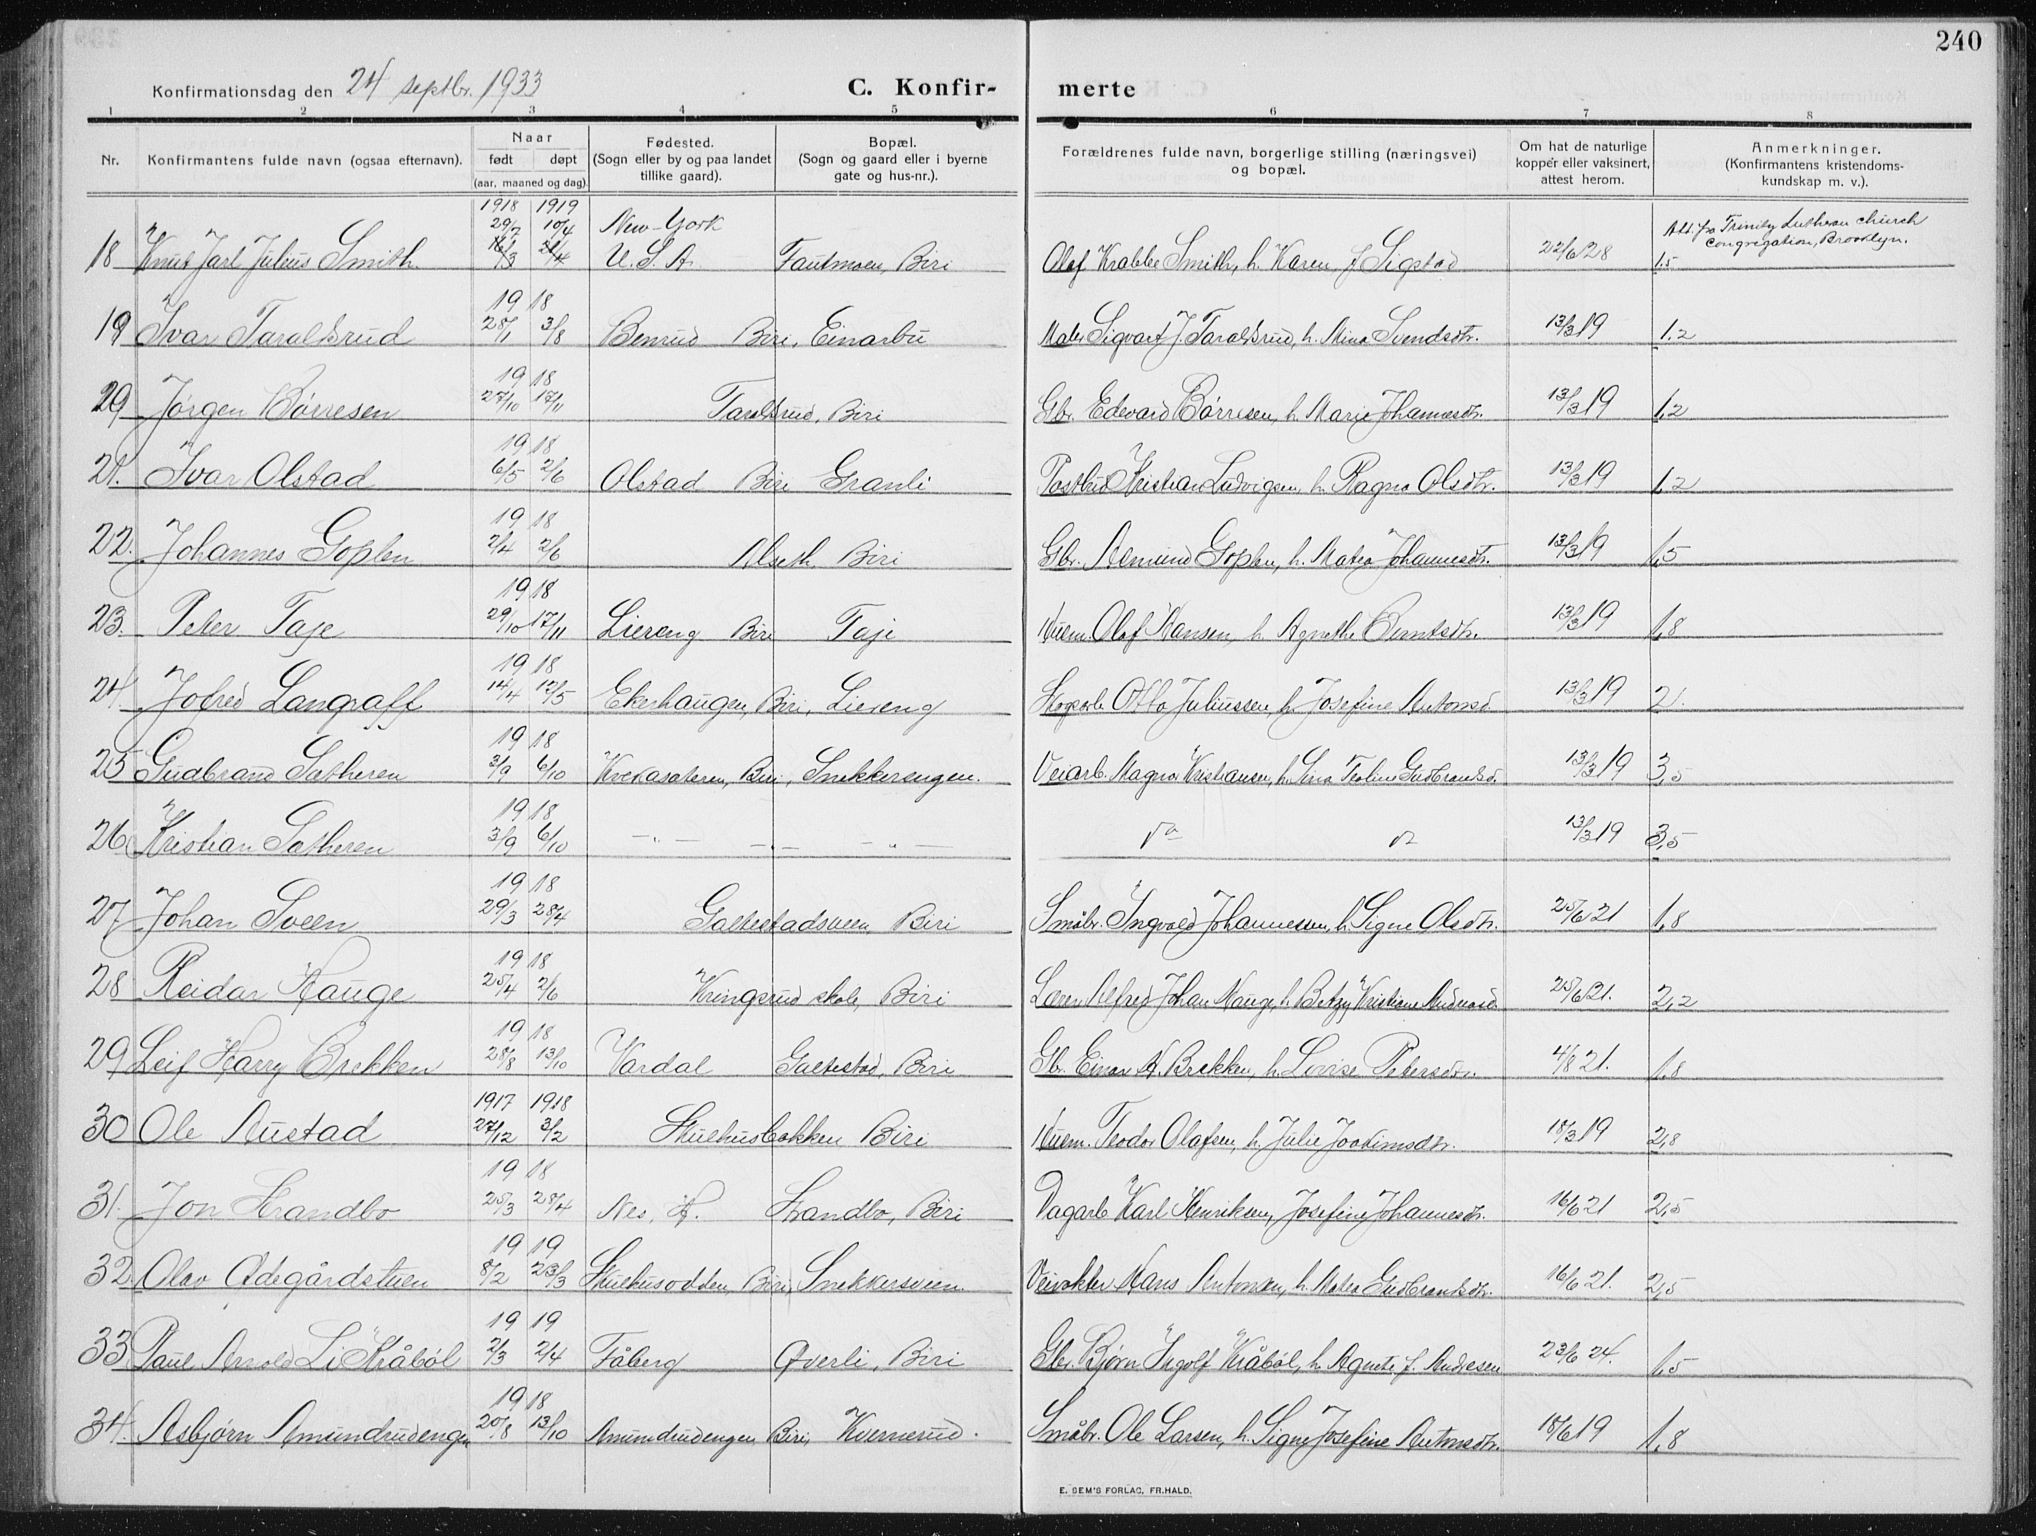 240
Konfirmationsdag den 24 septbr. 1933
C. Konfir- merte
1 2 3 4 5 6 7 8
Nr.
Konfirmantens fulde navn (ogsaa efternavn).
Naar
født døpt
(aar, maaned og dag)
Fødested.
(Sogn eller by og paa landet
tillike gaard).
Bopæl.
(Sogn og gaard eller i byerne
gate og hus-nr.).
Forældrenes fulde navn, borgerlige stilling (næringsvei)
og bopæl.
Om hat de naturlige
kopper eller vaksinert,
attest herom.
Anmerkninger.
(Konfirmantens kristendoms-
kundskap m. v.).
1918 1919
29/7 10/4 New-York Att. fra Trinity Lutheran church
congregation, Brooklyn.
18 Knut Jarl Julius Smith U.S.A. Fautmoen, Biri Olaf Krabbe Smith, h. Karen J. Sigstad 22/6 28 1.5
19 18
19 Ivar Taralsrud 28/1 3/8 Benrud Biri, Einarbu Maler Sigvart J. Taralsrud, h. Mina Svendsdtr. 13/3 19 1,2
19 18
20 Jørgen Børresen 27/10 17/11 Taralsrud, Biri Gbr. Edvard Børresen, h. Marie Johannesdtr. 13/3 19 1,2
19 18
21. Ivar Olstad 6/5 2/6 Olstad Biri Granli Postbud Kristian Ludvigsen, h. Ragna Olsdtr. 13/3 19 1,2
19 18
22. Johannes Goplen 2/4 2/6 Alseth, Biri Gbr. Amund Goplen, h. Matea Johannesdtr. 13/3 19 1,5
19 18
23. Peter Taje 29/10 17/11 Liereng Biri Taje Olaf Hansen, h. Agnethe Berntsdtr. 13/3 19 1,8
19 18
24 Jofred Langraff 14/4 12/5 Ekerhaugen, Biri, Liereng Skogsarb. Otto Juliussen, h. Josefine Antonsd. 13/3 19 2.
19 18
25 Gudbrand Sætheren 3/9 6/10 Biri, Snekkerengen. Veiarb. Magnus Kristiansen, h. Gudbrandsd. 13/3 19 3,5
19 18
26 Kristian Sætheren 3/9 6/10 -"- -"- -"- 13/3 19 3,5
19 18
27 Johan Sveen 29/3 28/4 Galtestadsveen, Biri Småbr. Ingvald Johannessen, h. Signe Olsdtr. 25/6 21 1,8
19 18
28 Reidar Hauge 25/4 2/6 Kringsrud skole, Biri Lærer Alfred Johan Hauge, h. Betzy Kristiane 25/6 21. 2,2
19 18
29 Leif Harry Brekken 28/8 13/10 Vardal Galtestad, Biri Gbr. Einar A. Brekken, h. Lovise Petersdtr. 4/8 21. 1,8
1917 1918
30 Ole Austad 27/12 3/2 Skulhusbakken, Biri Teodor Olafsen, h. Julie Joakimsdtr. 18/3 19 2,8
19 18
31. Jon Strandbo 25/3 28/4 Nes, H. Strandbo, Biri Dagarb. Karl Henriksen, Josefine Johannesdtr. 16/6 21 2,5
19 19
32. Olav Ødegårdstuen 8/2 23/3 Skulhusodden, Biri, Snekkersveen. Veivokter Hans Antonsen, h. Matea Gudbrandsdtr. 16/6 21. 2,5
19 19
33 Paul Arnold Li Kråbøl 2/3 2/4 Fåberg Øverli, Biri Gbr. Bjørn Ingolf Kråbøl, h. Agnete f. Andresen 23/6 24. 1,5
19 18
34. Asbjørn Amundrudengen 20/8 13/10 Amundrudengen Biri, Kvernerud. Småbr. Ole Larsen, h. Signe Josefine Antonsdtr. 18/6 19 1,8
E. SEM'S FORLAG, FR.HALD.